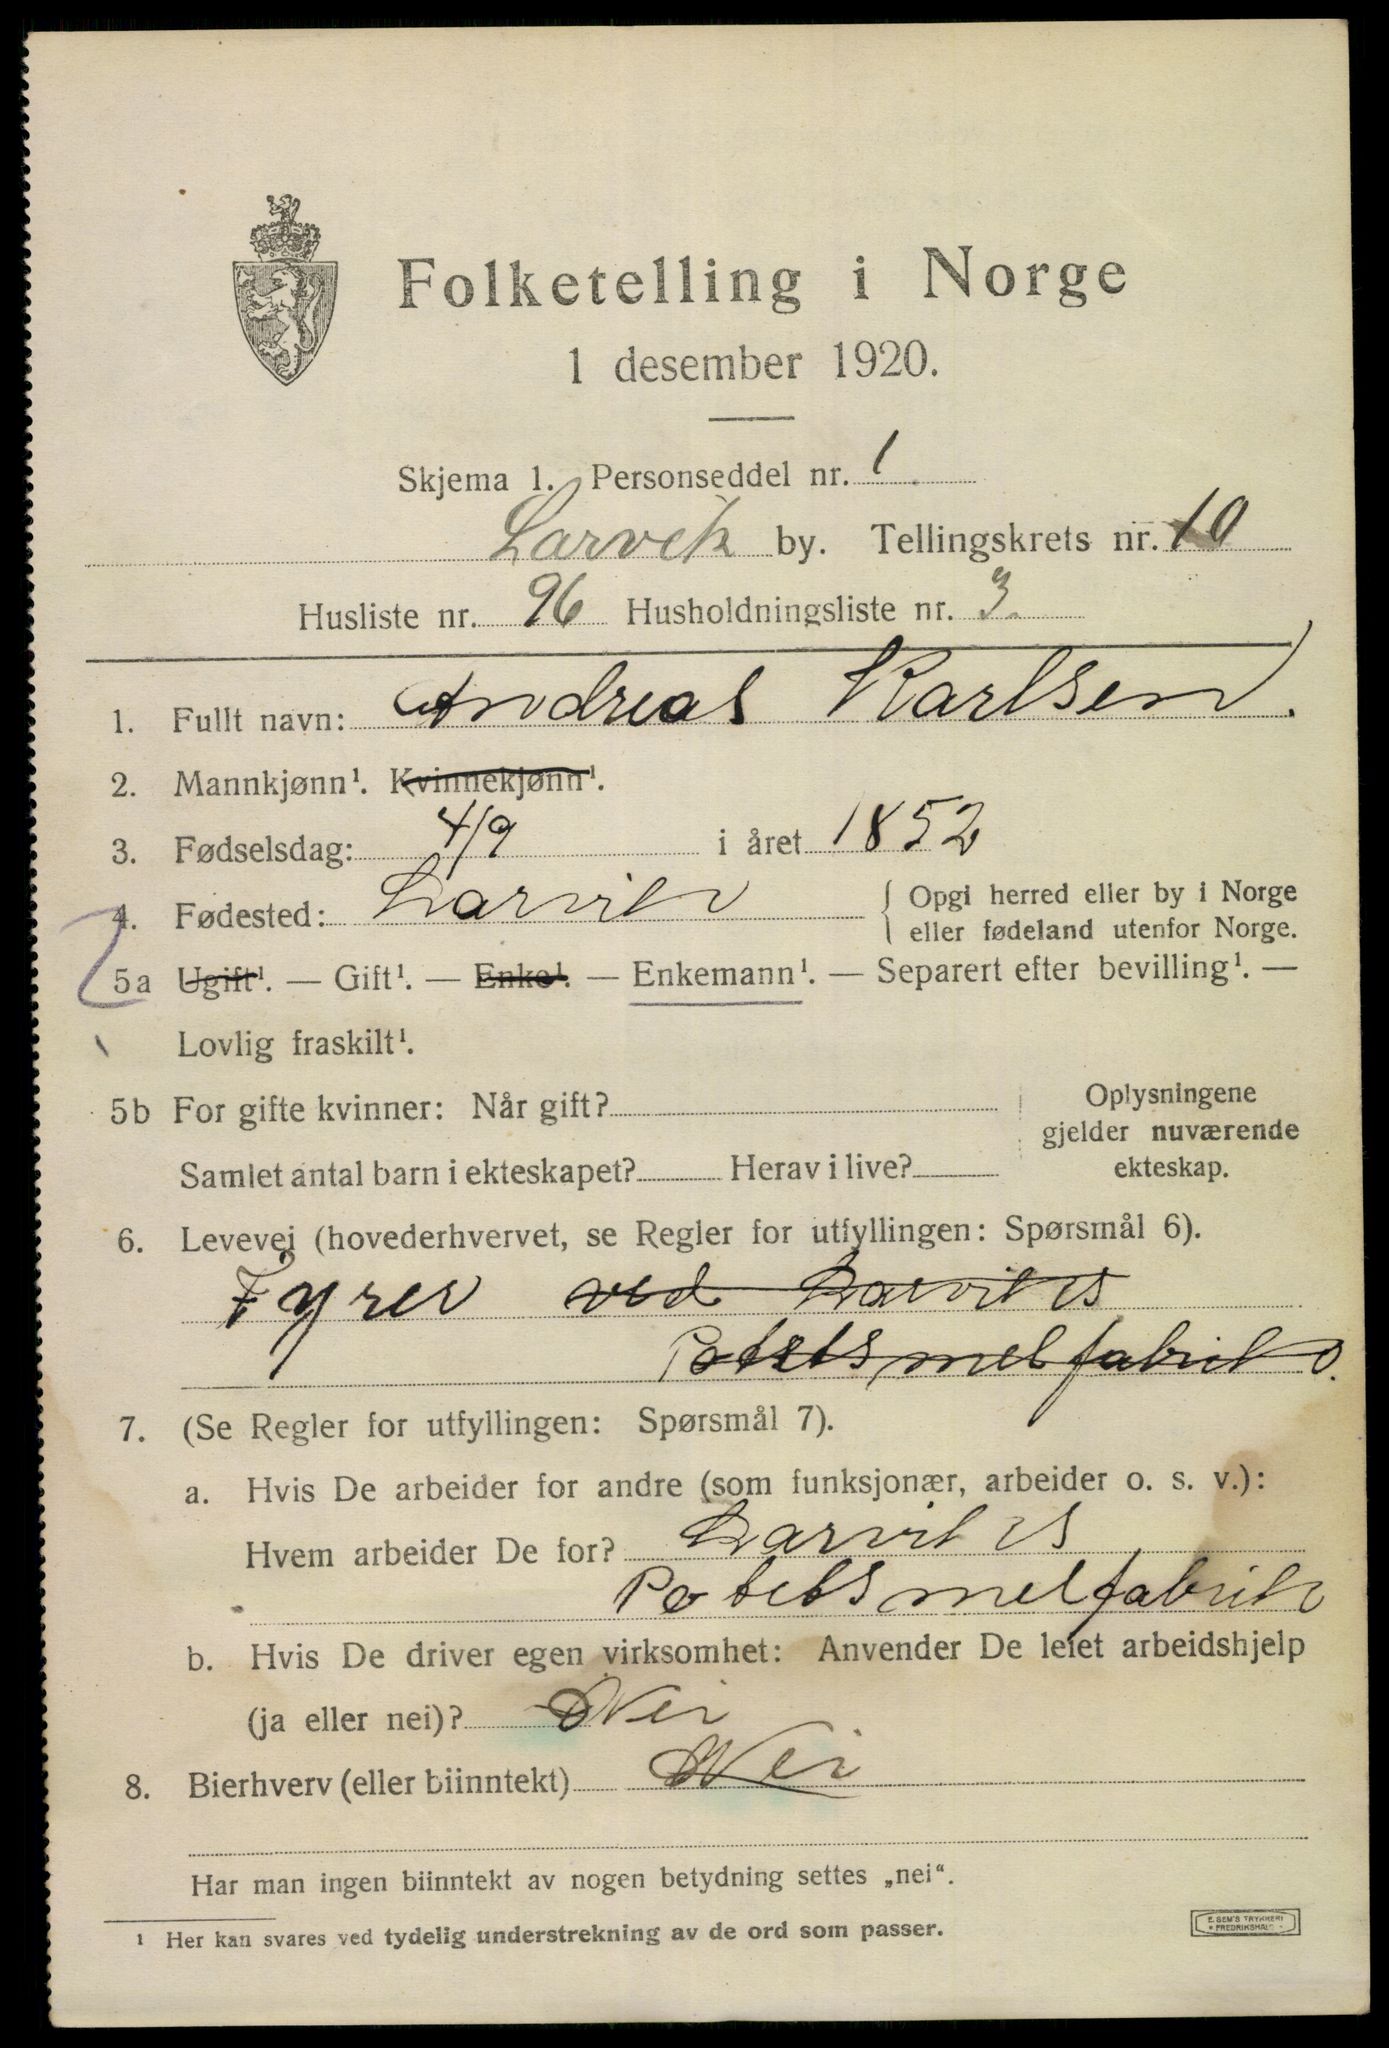 Folketelling i Norge
1 desember 1920.
Skjema 1. Personseddel nr. 1
Larvik by. Tellingskrets nr. 10
Husliste nr. 96 Husholdningsliste nr. 3.
1. Fullt navn: Andreas Karlsen.
2. Mannkjønn¹. Kvinnekjønn¹.
3. Fødselsdag: 4/9 i året 1852
4. Fødested: Larvik { Opgi herred eller by i Norge
eller fødeland utenfor Norge.
5a Ugift¹. — Gift¹. — Enke¹. — Enkemann¹. — Separert efter bevilling¹. —
Lovlig fraskilt¹.
5b For gifte kvinner: Når gift? Oplysningene
gjelder nuværende
Samlet antal barn i ekteskapet? Herav i live? ekteskap.
6. Levevei (hovederhvervet, se Regler for utfyllingen: Spørsmål 6).
Fyrer ved Larviks
Potetsmelfabrik.
7. (Se Regler for utfyllingen: Spørsmål 7).
a. Hvis De arbeider for andre (som funksjonær, arbeider o. s. v.):
Hvem arbeider De for? Larviks
Potetsmelfabrik
b. Hvis De driver egen virksomhet: Anvender De leiet arbeidshjelp
(ja eller nei)? Nei
8. Bierhverv (eller biinntekt) Nei
Har man ingen biinntekt av nogen betydning settes „nei“.
¹ Her kan svares ved tydelig understrekning av de ord som passer.
E. SEM'S TRYKKERI
FREDRIKSHALD